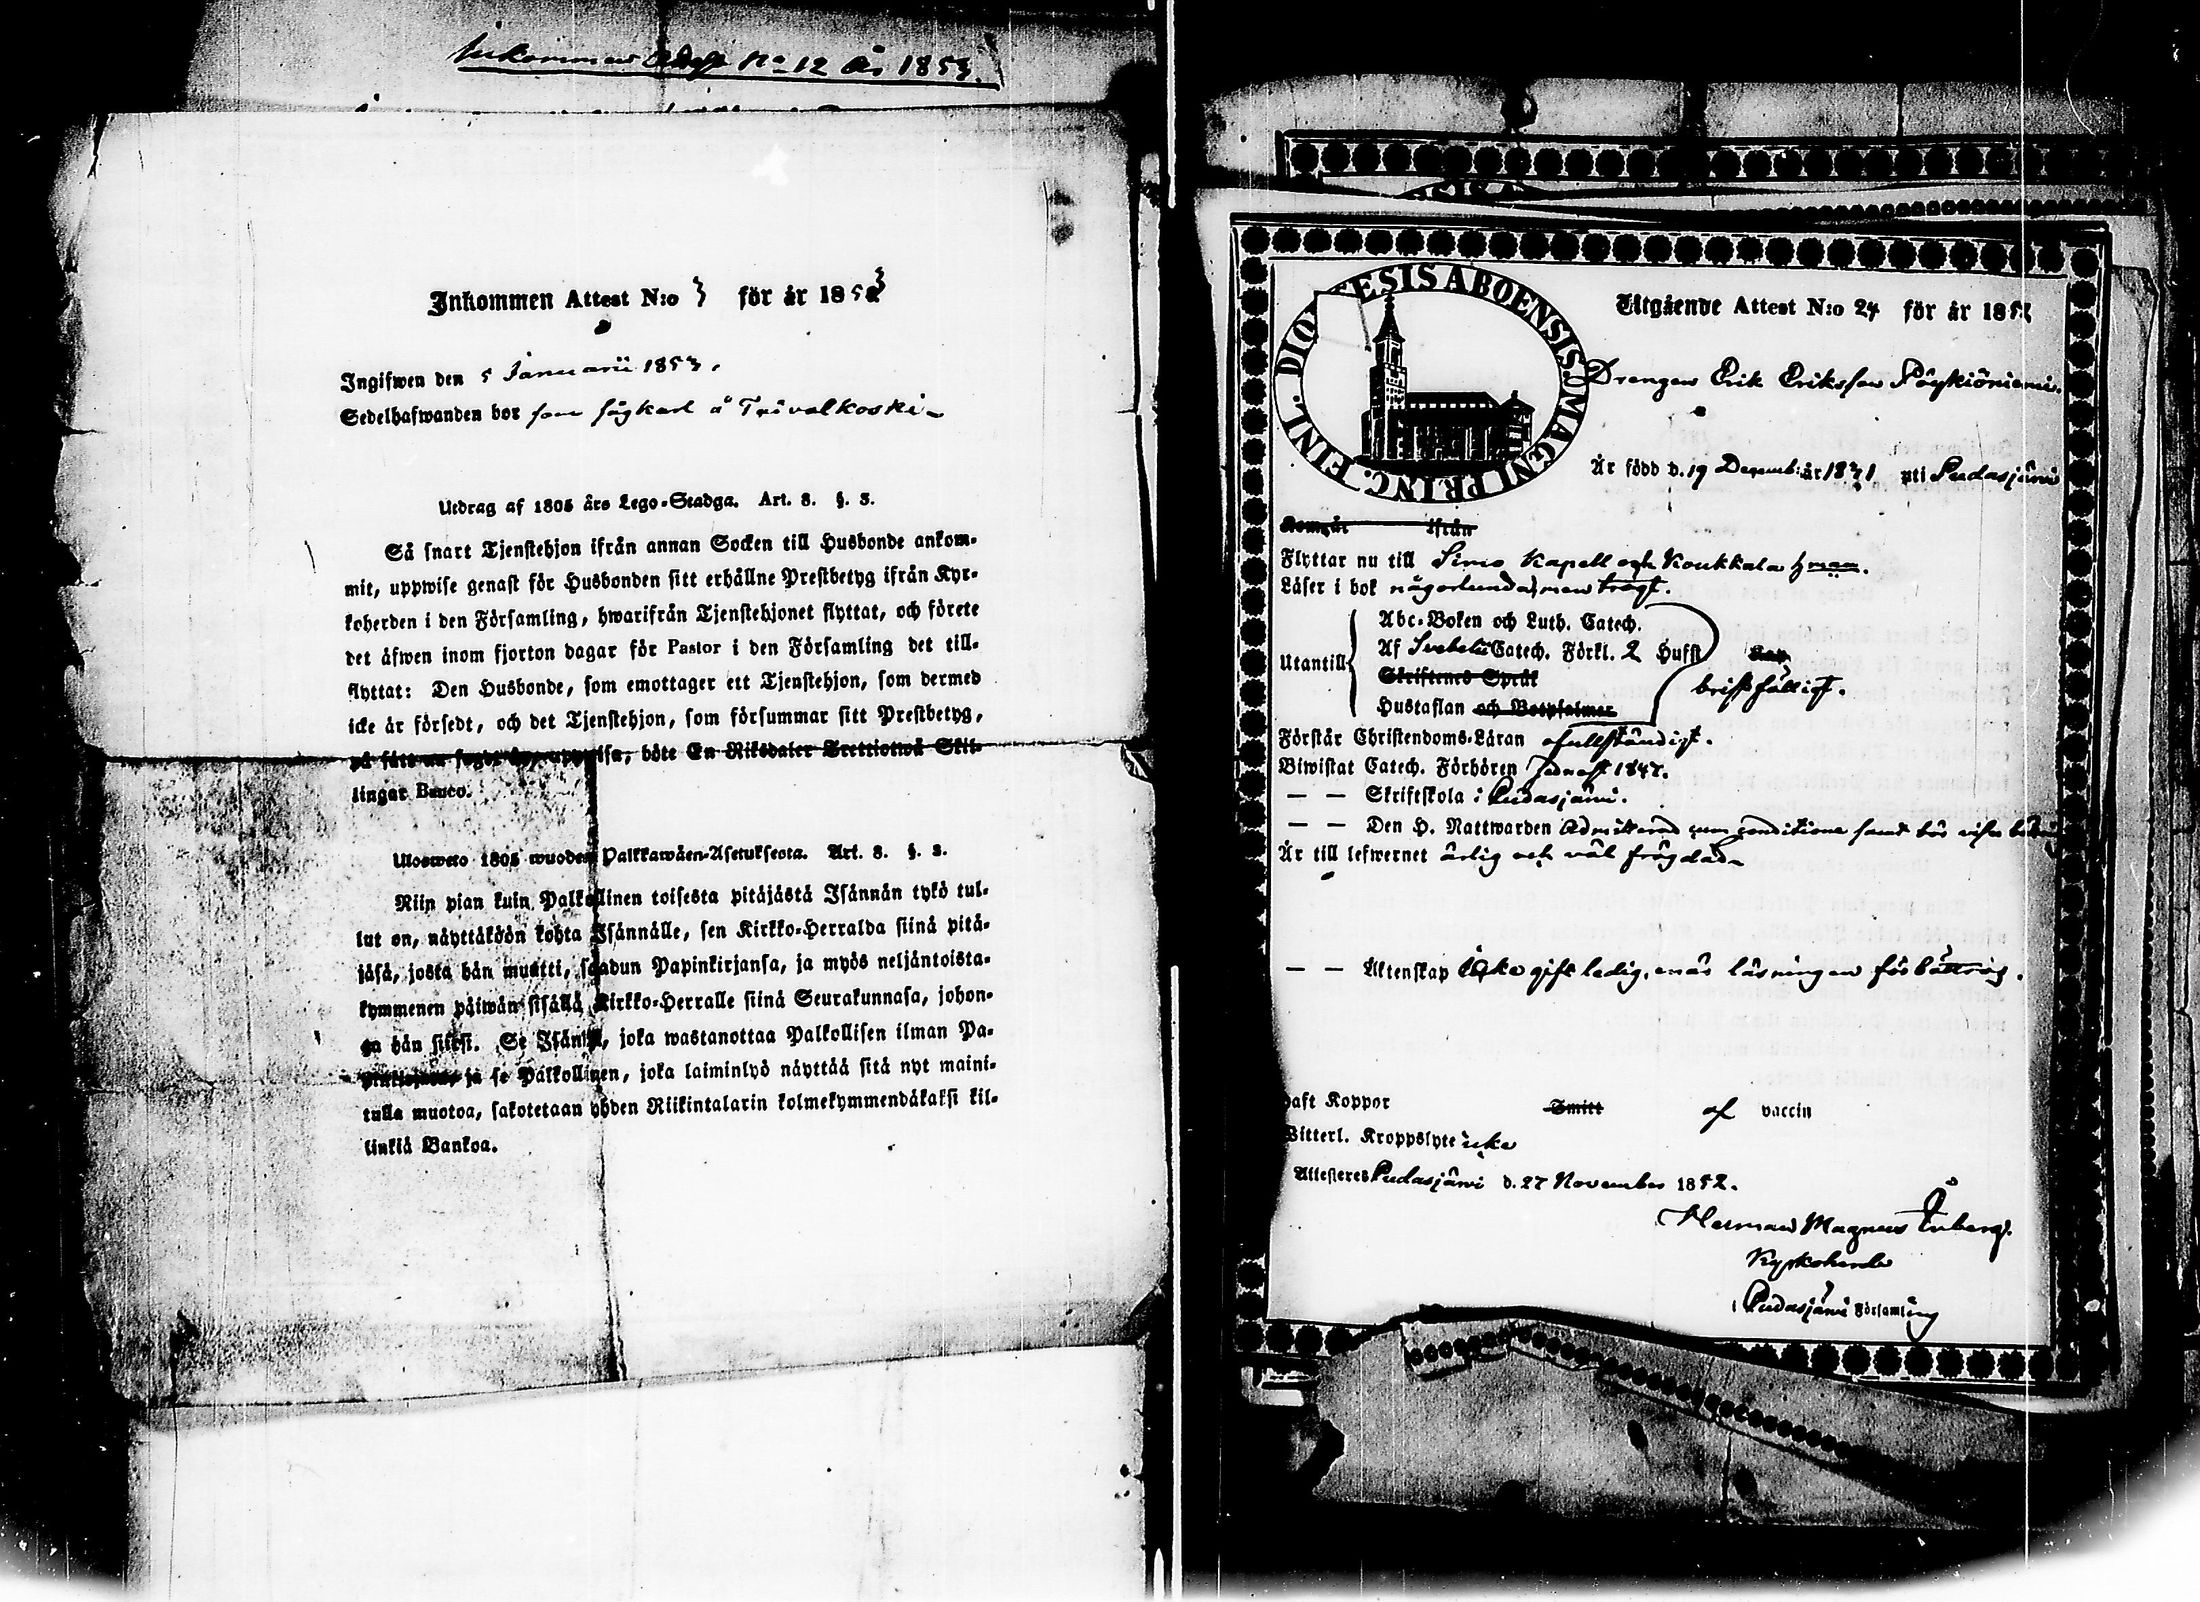 Inkommen Attest No 12 År 1853.
Inkommen Attest N:o 3 för år 1853
Ingifwen den 5 Januarii 1853.
Sedelhafwanden bor som sågkarl å Taivalkoski
Utdrag af 1805 års Lego-Stadga. Art. 8. §. 3.
Så snart Tjenstehjon ifrån annan Socken till Husbonde ankom-
mit, uppwise genast för Husbonden sitt erhållne Prestbetyg ifrån Kyr-
koherden i den Församling, hwarifrån Tjenstehjonet flyttat, och förete
det äfwen inom fjorton dagar för Pastor i den Församling det till-
flyttat: Den Husbonde, som emottager ett Tjenstehjon, som dermed
icke är försedt, och det Tjenstehjon, som försummar sitt Prestbetyg,
på sätt nu sagdt är, uppwisa, böte En Riksdaler Trettiotwå Skil-
lingar Banco.
Ulosweto 1805 wuoden Palkkawäen-Asetuksesta. Art. 8. §. 3.
Niin pian kuin Palkollinen toisesta pitäjästä Isännän tykö tul-
lut on, näyttäköön kohta Isännälle, sen Kirkko-Herralda siinä pitä-
jäsä, josta hän muutti, saadun Papinkirjansa, ja myös neljäntoista-
kymmenen päiwän sisällä Kirkko-Herralle siinä Seurakunnasa, johon-
ga hän siirsi. Se Isändä, joka wastanottaa Palkollisen ilman Pa-
pinkirjata, ja se Palkollinen, joka laiminlyö näyttää sitä nyt maini-
tulla muotoa, sakotetaan yhden Riikintalarin kolmekymmendäkaksi kil-
linkiä Bankoa.
DIOECESIS ABOENSIS. MAGNI PRINC. FINL.
Utgående Attest N:o 24 för år 1852
Drengen Erik Eriksson Pöykiöniemi.
Är född d. 19 Decemb: år 1831 uti Pudasjärvi
Kom år ifrån
Flyttar nu till Simo Kapell och Koukkala hman.
Läser i bok någorlunda, men trögt.
Utantill
Abc-Boken och Luth. Catech.
Af Svebelii Catech. Förkl. 2 Hufst
Skriftenes Språk
Hustaflan och Botpsalmer
bristfälligt.
Förstår Christendoms-Läran ofullständigt.
Biwistat Catech. Förhören senast 1847.
— — Skriftskola i Pudasjärvi.
— — Den H. Nattwarden Admitterad cum conditione samt bör
Är till lefwernet ärlig och väl frägdad
— — Äktenskap Icke gift ledig, enär läsningen förbättras.
Haft Koppor Smitt af vaccin
Witterl. Kroppslyte icke
Attesteres Pudasjärvi d. 27 November 1852.
Herman Magnus Enberg.
Kyrkoherde
i Pudasjärvi Församling